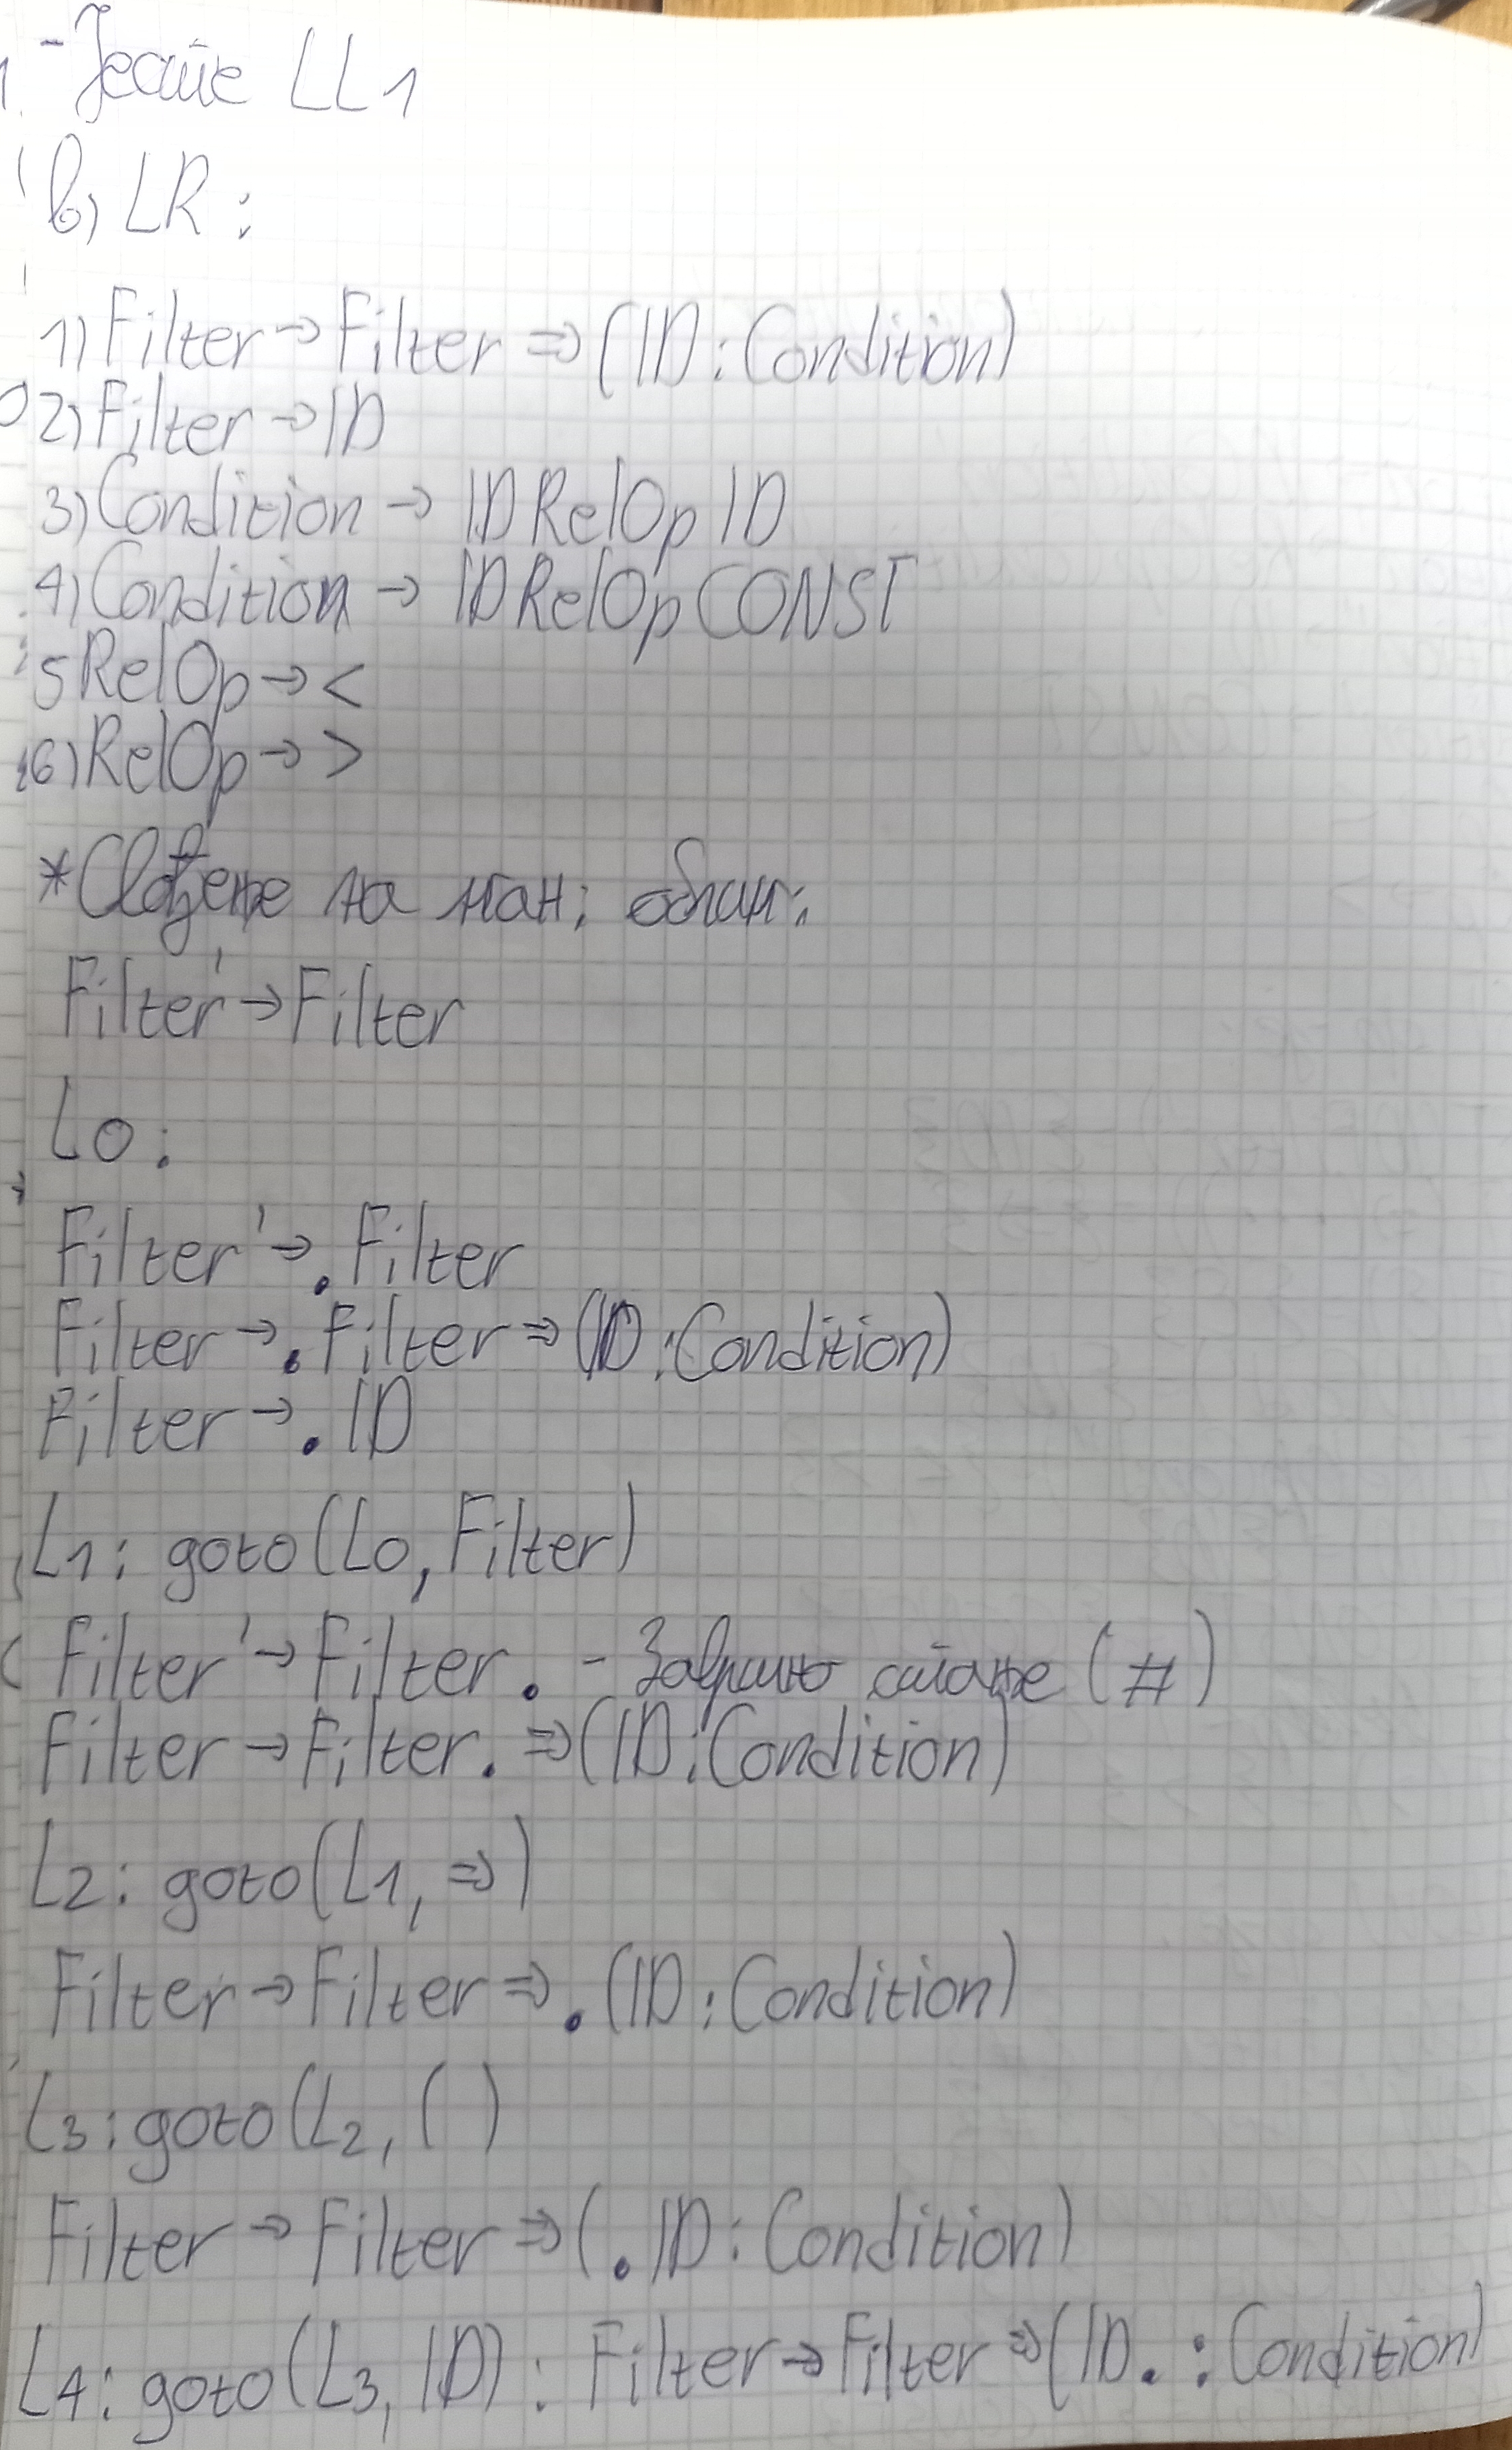 - Јесте LL1
б) LR:
1) Filter → Filter => (ID : Condition)
2) Filter → ID
3) Condition → ID RelOp ID
4) Condition → ID RelOp CONST
5 RelOp → <
6) RelOp → >
*Свођење на
Filter' → Filter
L0:
Filter' → . Filter
Filter → . Filter => (ID : Condition)
Filter → . ID
L1: goto(L0, Filter)
Filter' → Filter. - Завршно стање (#)
Filter → Filter. => (ID : Condition)
L2: goto(L1, =>)
Filter → Filter => . (ID : Condition)
L3: goto(L2, ( )
Filter → Filter => ( . ID : Condition)
L4: goto(L3, ID) : Filter → Filter => (ID . : Condition)